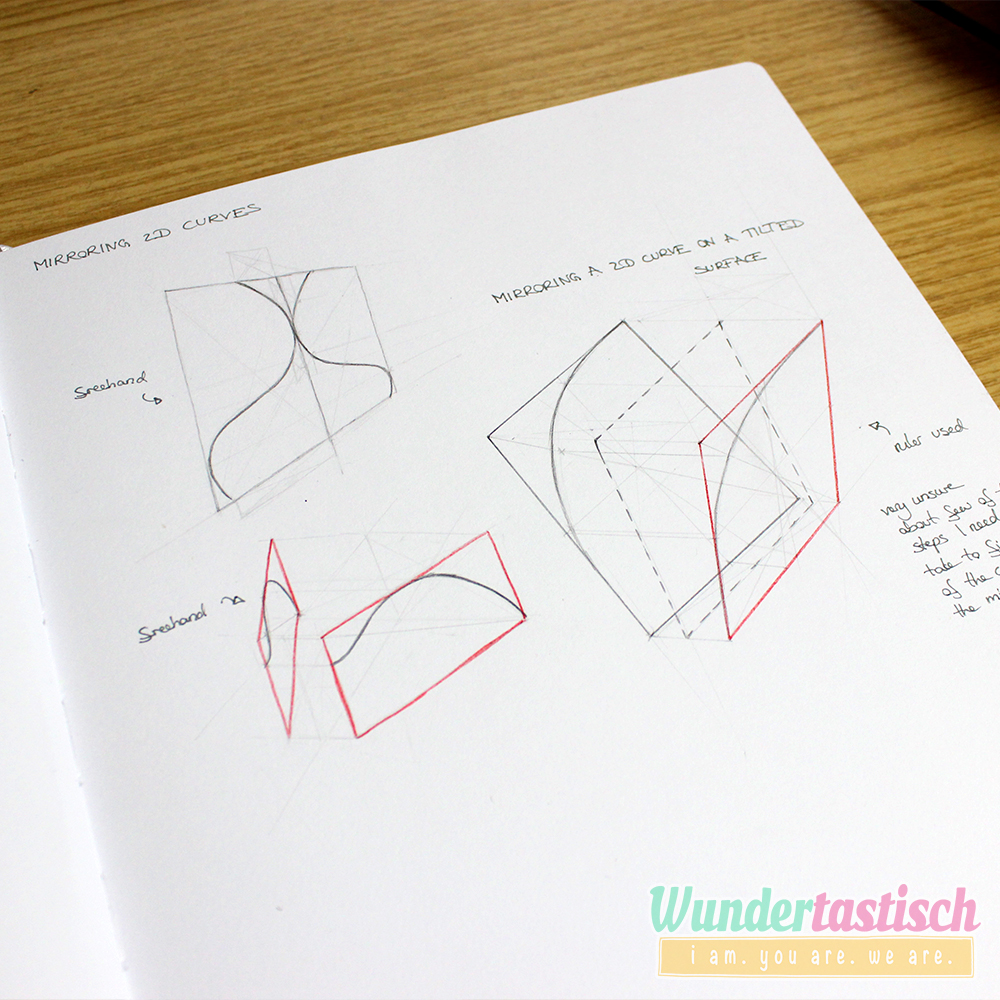 MIRRORING 2D CURVES
freehand
MIRRORING A 2D CURVE ON A TILTED
SURFACE
ruler used
very unsure
about few of
steps I need
take to
of the
the
freehand
Wundertastisch
i am. you are. we are.